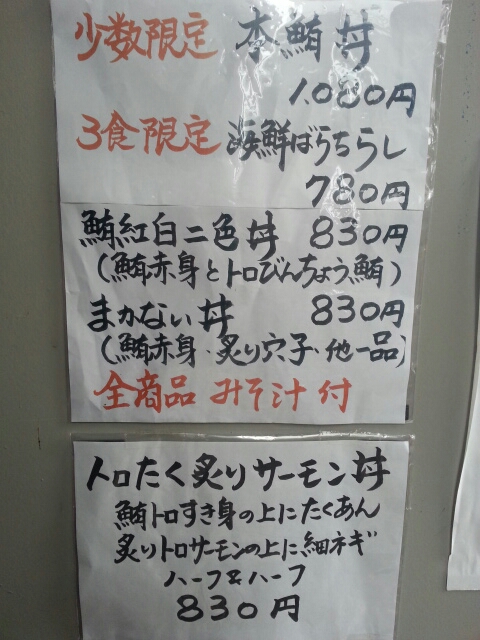 少数限定 本鮪丼
1,080円
3食限定 海鮮ばらちらし
780円
鮪紅白二色丼 830円
(鮪赤身とトロびんちょう鮪)
まかない丼 830円
(鮪赤身・炙り穴子・他一品)
全商品 みそ汁付
トロたく炙りサーモン丼
鮪トロすき身の上にたくあん
炙りトロサーモンの上に細ネギ
ハーフ&ハーフ
830円